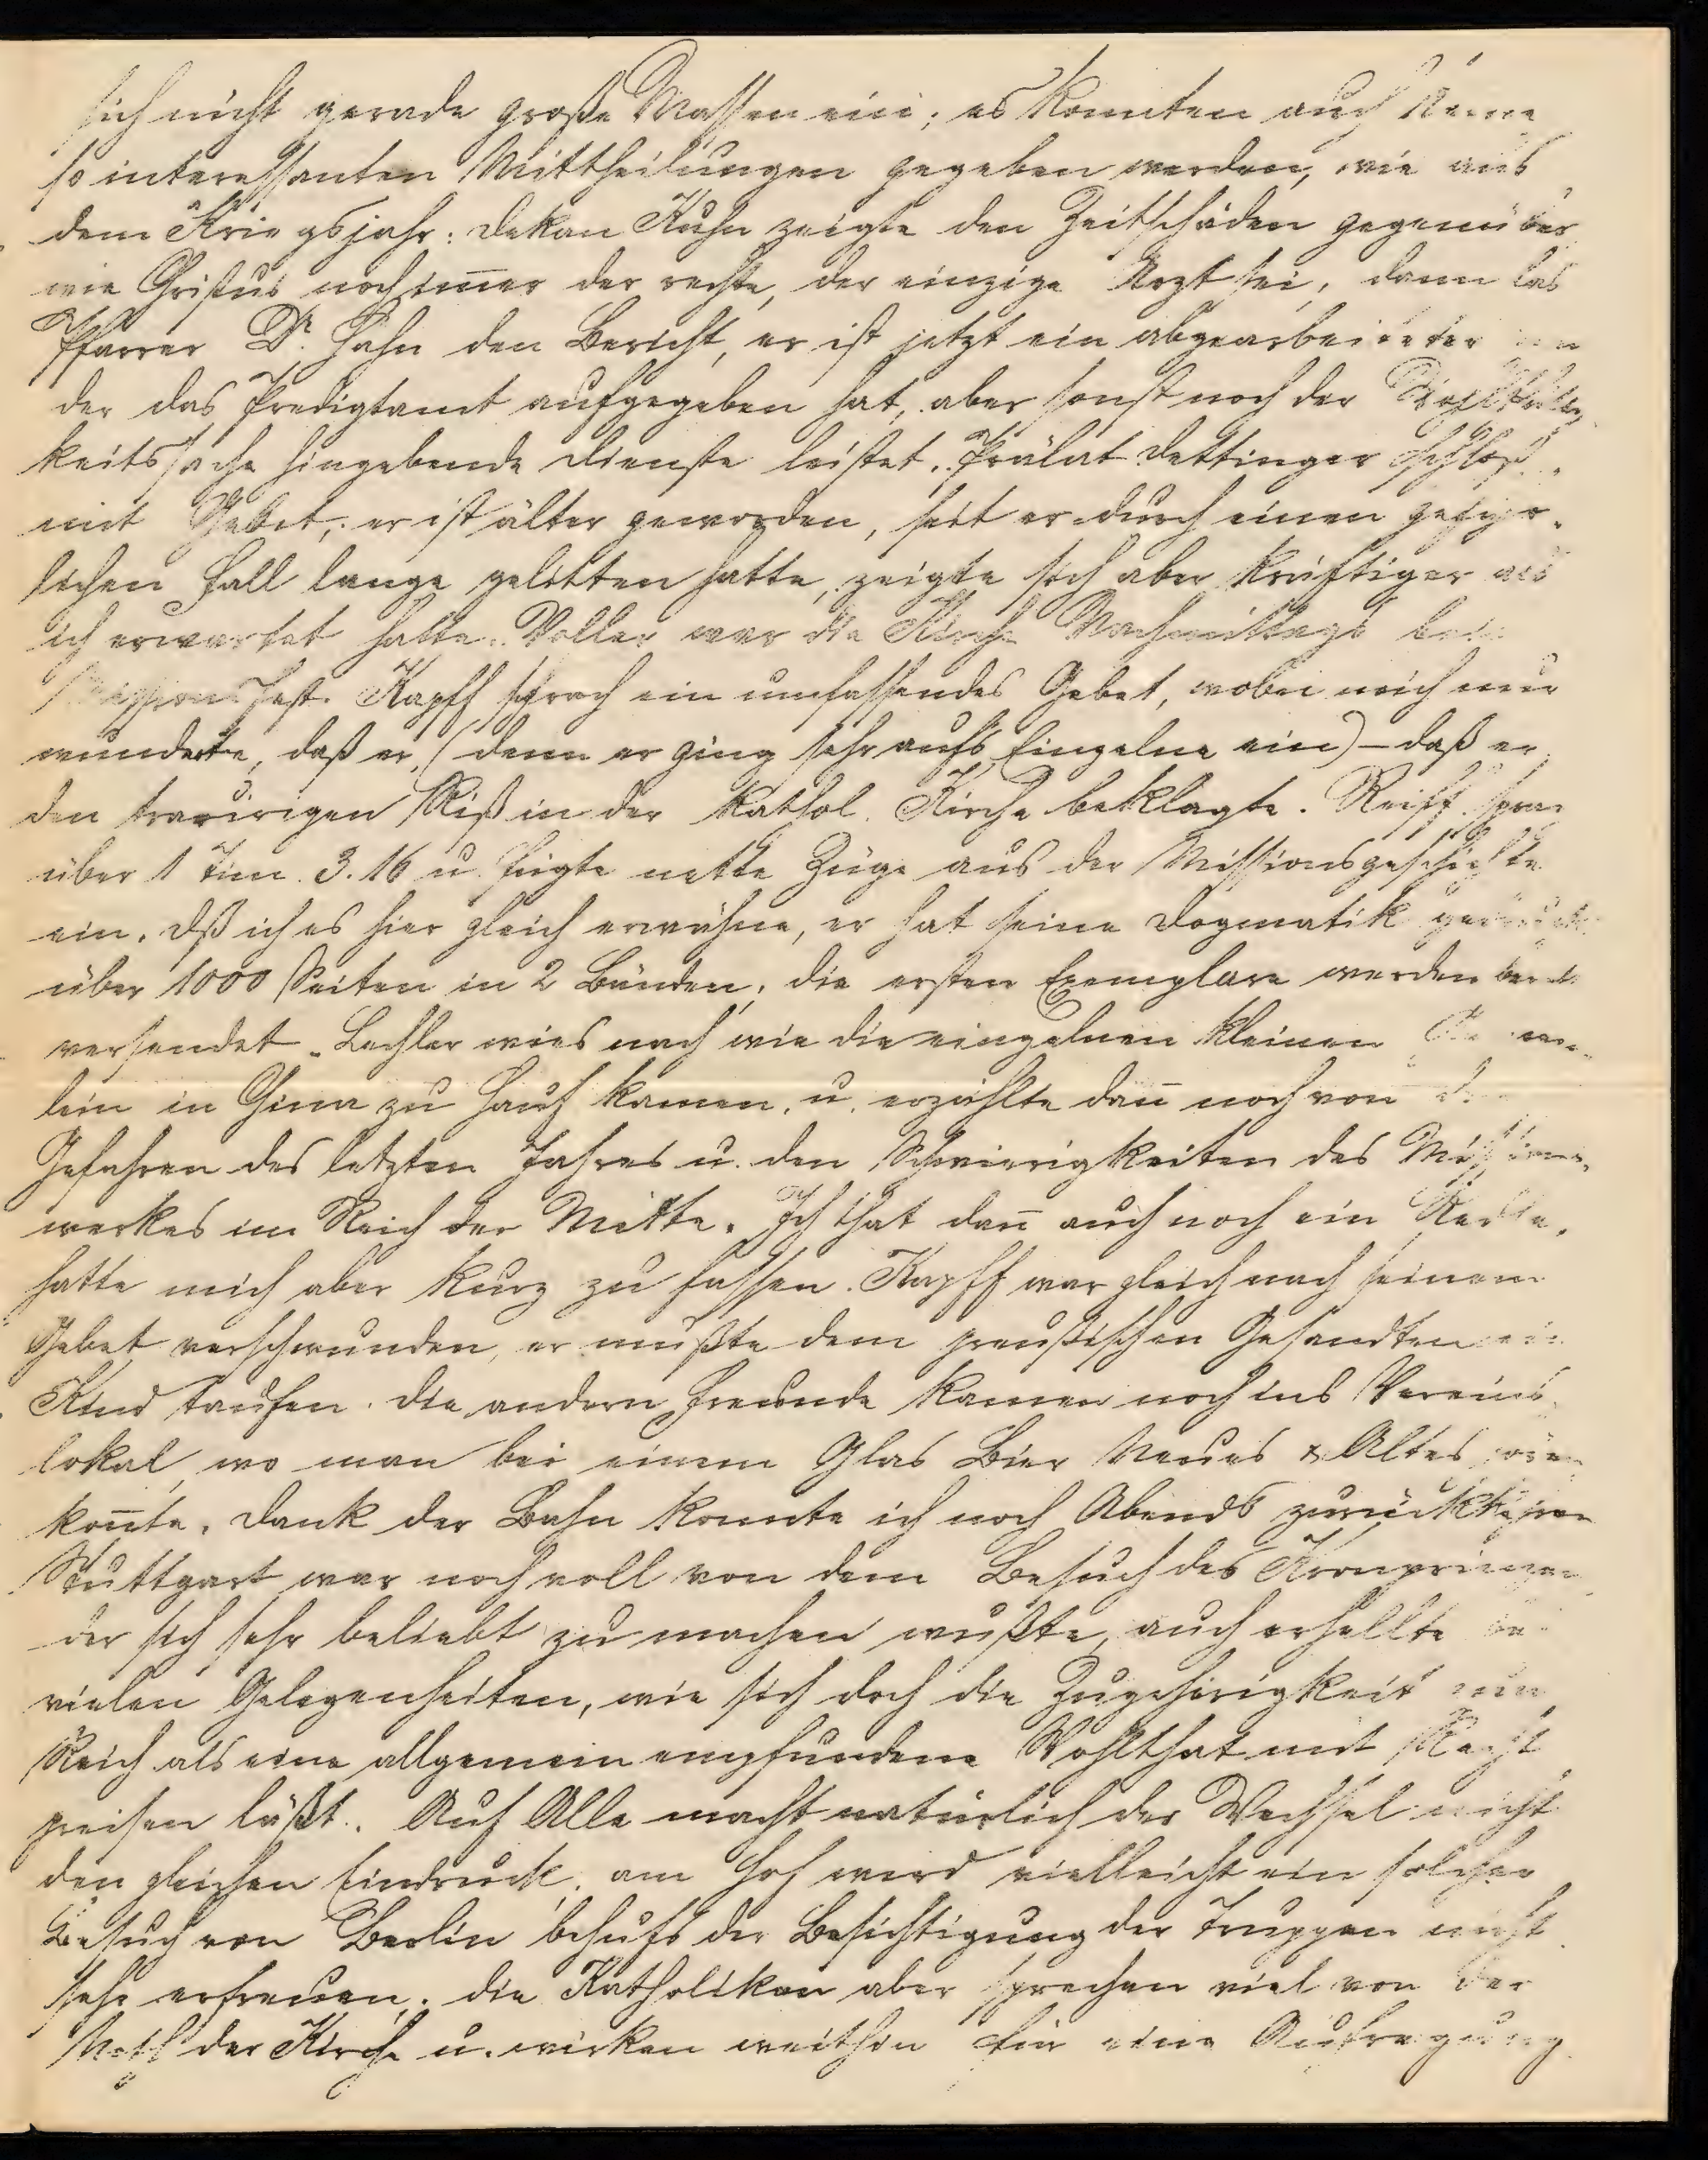 sich nicht gerade große Massen ein; es konnten auch keine
so interessanten Mittheilungen gegeben werden, wie aus
dem Kriegsjahr: Dekan Kuhn zeigte den Zeitschäden gegenüber
wie Christus noch im̄er der rechte, der einzige Arzt sei, dann las
Pfarrer Dr. Hahn den Bericht, er ist jetzt ein abgearbeiteter
der das Predigtamt aufgegeben hat, aber sonst noch der
keitssache hingebende Dienste leistet. Prälat Dettinger schloß
mit Gebet; er ist älter geworden, seit er durch einen gefähr-
lichen Fall lange gelitten hatte, zeigte sich aber kräftiger als
ich erwartet hatte. Voller war die Kirche Nachmittags beim
Missionsfest. Kapff sprach ein umfassendes Gebet, wobei mich nur
wunderte, daß er, (denn er ging sehr aufs Einzelne ein) – daß er
den traurigen Riß in der kathol. Kirche beklagte. Reiff sprach
über 1 Tim. 3.16 u. fügte nette Züge aus der Missionsgeschichte
ein. Dß ich es hier gleich erwähne, er hat seine Dogmatik
über 1000 Seiten in 2 Bänden; die ersten Exemplare werden
versendet. Lechler wies nach wie die einzelnen kleinen
lein in China zu Hauf kamen, u. erzählte dan̄ noch von den
Gefahren des letzten Jahres u. den Schwierigkeiten des Missions-
werkes im Reich der Mitte. Ich that dan̄ auch noch ein
hatte mich aber kurz zu fassen. Kapff war gleich nach seinem
Gebet verschwunden, er mußte dem preußischen Gesandten ein
Kind taufen. Die andern Freunde kamen noch ins Vereins-
lokal, wo man bei einem Glas Bier Neues & Altes
kon̄te. Dank der Bahn konnte ich noch Abends zurückkehren
Stuttgart war noch voll von dem Besuch des Kronprinzen
der sich sehr beliebt zu machen wußte, auch erhellte bei
vielen Gelegenheiten, wie sich doch die Zugehörigkeit zum
Reich als eine allgemein empfundene Wohlthat mit Recht
preisen läßt. Auf Alle macht natürlich der Wechsel nicht
den gleichen Eindruck, am Hof wird vielleicht ein solcher
Besuch von Berlin behufs der Besichtigung der Truppen nicht
sehr erfreuen; die Katholiken aber sprechen viel von der
Noth der Kirche u. wirken weithin für eine Aufregung